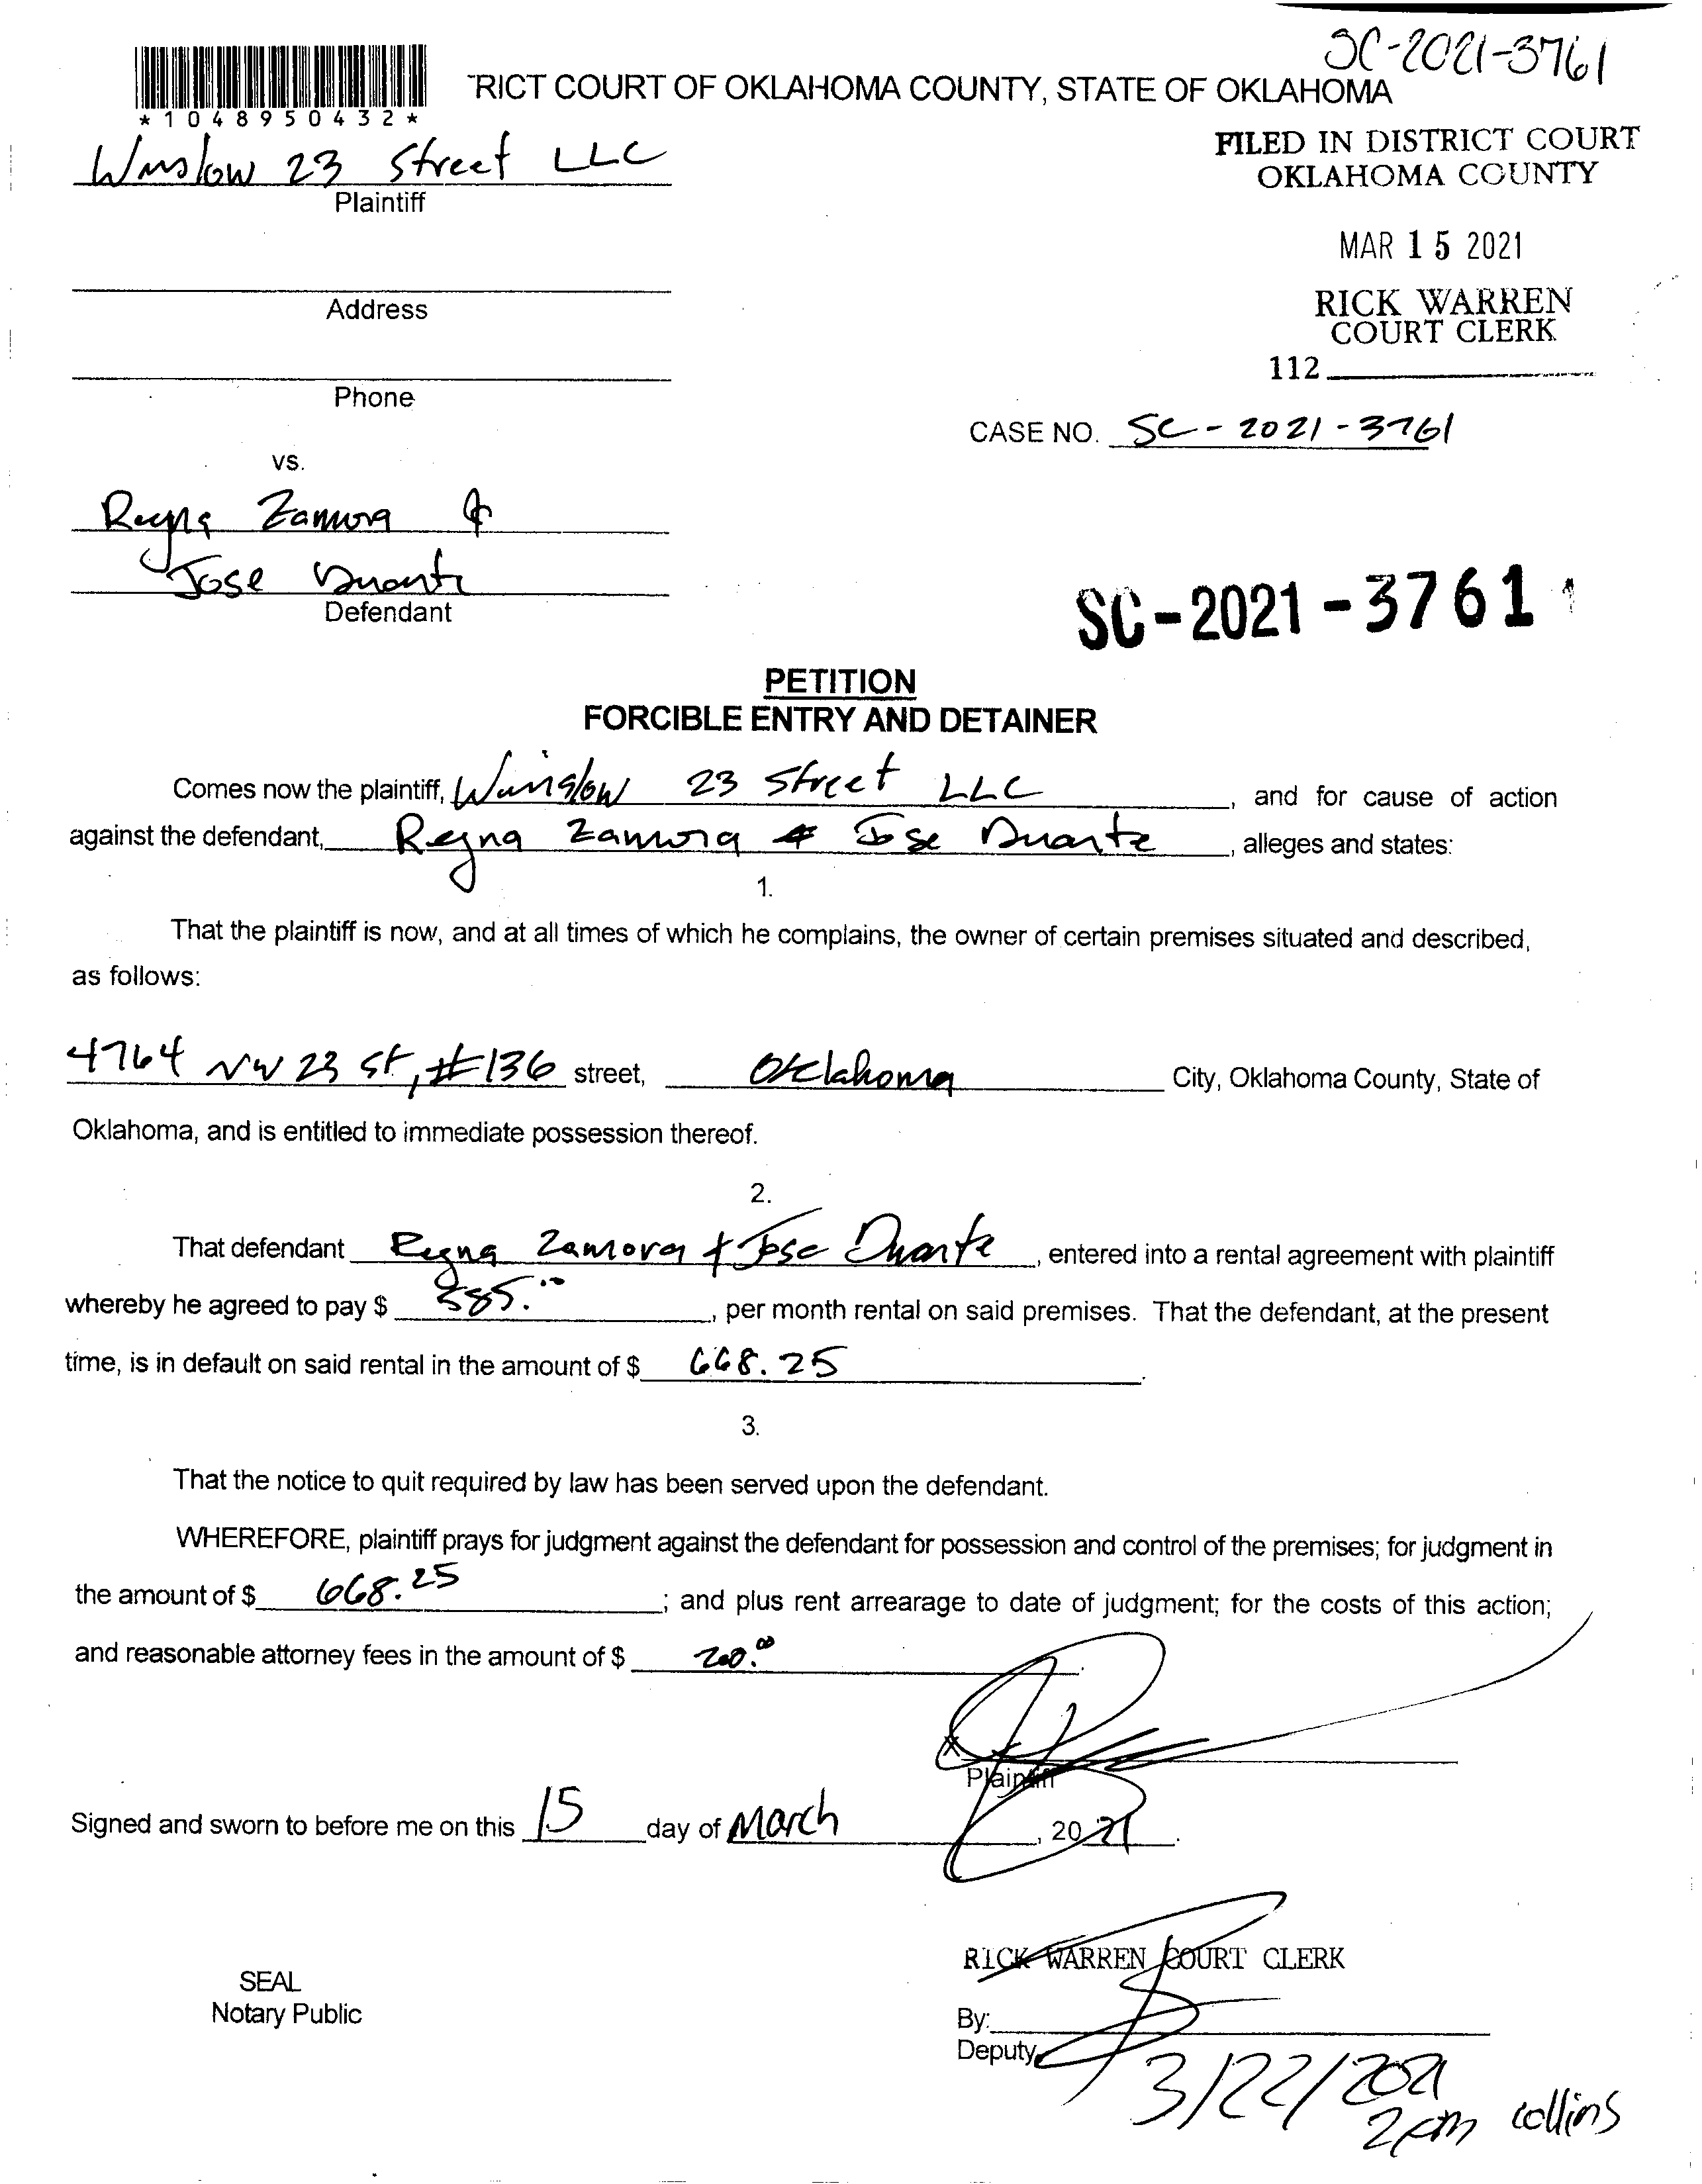 SC-2021-3761
RICT COURT OF OKLAHOMA COUNTY, STATE OF OKLAHOMA
*1048950432*
FILED IN DISTRICT COURT
OKLAHOMA COUNTY
Winslow 23 Street LLC
Plaintiff
MAR 15 2021
Address
RICK WARREN
COURT CLERK
112
Phone
CASE NO. SC-2021-3761
vs.
Reyna Zamora &
Jose Duarte
Defendant
SC-2021-3761
PETITION
FORCIBLE ENTRY AND DETAINER
Comes now the plaintiff, Winslow 23 Street LLC, and for cause of action
against the defendant, Reyna Zamora & Jose Duarte, alleges and states:
1.
That the plaintiff is now, and at all times of which he complains, the owner of certain premises situated and described,
as follows:
4764 NW 23 St, #136 street, Oklahoma City, Oklahoma County, State of
Oklahoma, and is entitled to immediate possession thereof.
2.
That defendant Reyna Zamora & Jose Duarte, entered into a rental agreement with plaintiff
whereby he agreed to pay $ 585.00, per month rental on said premises. That the defendant, at the present
time, is in default on said rental in the amount of $ 668.25.
3.
That the notice to quit required by law has been served upon the defendant.
WHEREFORE, plaintiff prays for judgment against the defendant for possession and control of the premises; for judgment in
the amount of $ 668.25; and plus rent arrearage to date of judgment; for the costs of this action;
and reasonable attorney fees in the amount of $ 200.00.
X
Plaintiff
Signed and sworn to before me on this 15 day of March, 2021.
RICK WARREN COURT CLERK
SEAL
Notary Public
By:
Deputy
3/22/2021
2pm collins